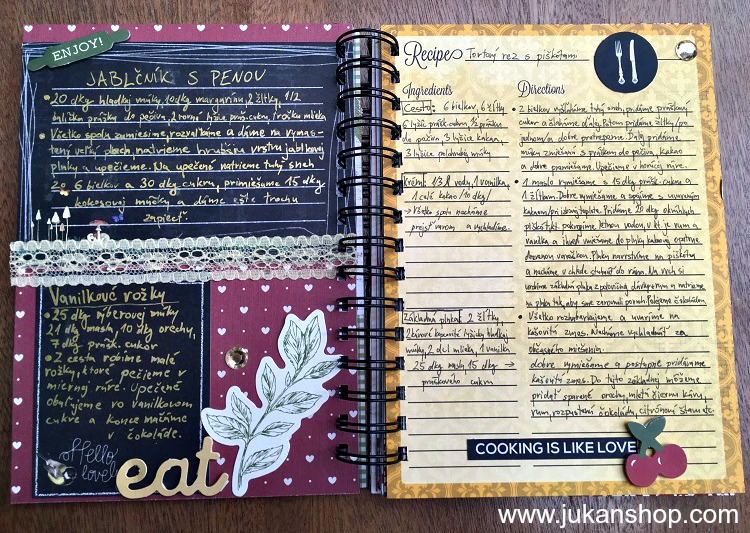 ENJOY!
JABLČNÍK S PENOU
• 20 dkg hladkej múky, 10 dkg margarínu, 2 žĺtky, 1/2
prášku do pečiva, 2 lyžica mlieka
• Všetko spolu zamiesime, rozvaľkáme a dáme na vymas-
tený veľký plech natrieme hrubšiu vrstvu jablkovej
plnky a upečieme. Na upečené natrieme tuhý sneh
zo 6 bielkov a 30 dkg cukru, primiešame 15 dkg
kokosovej múčky a dáme ešte trochu
zapiecť.
Vanilkové rožky
• 25 dkg výberovej múky
21 dkg masla, 10 dkg orechy,
7 dkg prášk. cukor
• Z cesta robíme malé
rožky, ktoré pečieme v
miernej rúre. Upečené
obaľujeme vo vanilkovom
cukre a konce máčame
v čokoláde.
Hello
lovely
eat
Recipe Tortový rez s piškótami
Ingredients
Cesto: 6 bielkov, 6 žĺtky,
6 lyžíc prášk. cukru, 1/2 prášku
do pečiva, 3 lyžice kakaa,
3 lyžice polohrubej múky
Krém: 1/3 l vody, 1 vanilka,
1 celé kakao /10 dkg/
→ Všetko spolu necháme
prejsť varom a vychladíme.
Základná plnka: 2 žĺtky,
2 lyžičky hladkej
múky, 2 dcl mlieka, 1 vanilka
25 dkg masla 15 dkg →
práškového cukru
Directions
• Z bielkov vyšľaháme tuhý sneh, pridáme práškový
cukor a šľaháme ďalej. Potom pridáme žĺtky/po
jednom/a dobre pretrepeme. Ďalej pridáme
múku zmiešanú s práškom do pečiva, kakao
a dobre premiešame. Upečieme v horúcej rúre.
• 1 maslo vymiešame s 15 dkg prášk. cukru a
1 žĺtkom. Dobre vymiešame a spojíme s uvareným
kakaom/pri izbovej teplote. Pridáme 20 dkg okrúhlych
piškót, kt. pokropíme letnou vodou, v kt. je rum a
vanilka a ihneď vmiešame do plnky kakaovej opatrne
drevenou varechou. Plnku navrstvíme na piškóty
a necháme v chlade stuhnúť do rána. Na vrch si
urobíme základnú plnku z polovičnej dávky + rum a natrieme
na plnku tak, aby sme zarovnali povrch. Polejeme čokoládou.
• Všetko rozšľaháme a uvaríme na
kašovitú zmes. Necháme vychladnúť za
občasného miešania.
dobre vymiešame a postupne pridávame
kašovitú zmes. Do tejto základnej môžeme
pridať sparené orechy, mletú čiernu kávu,
rum, rozpustenú čokoládu, citrónovú šťavu etc.
COOKING IS LIKE LOVE
www.jukanshop.com